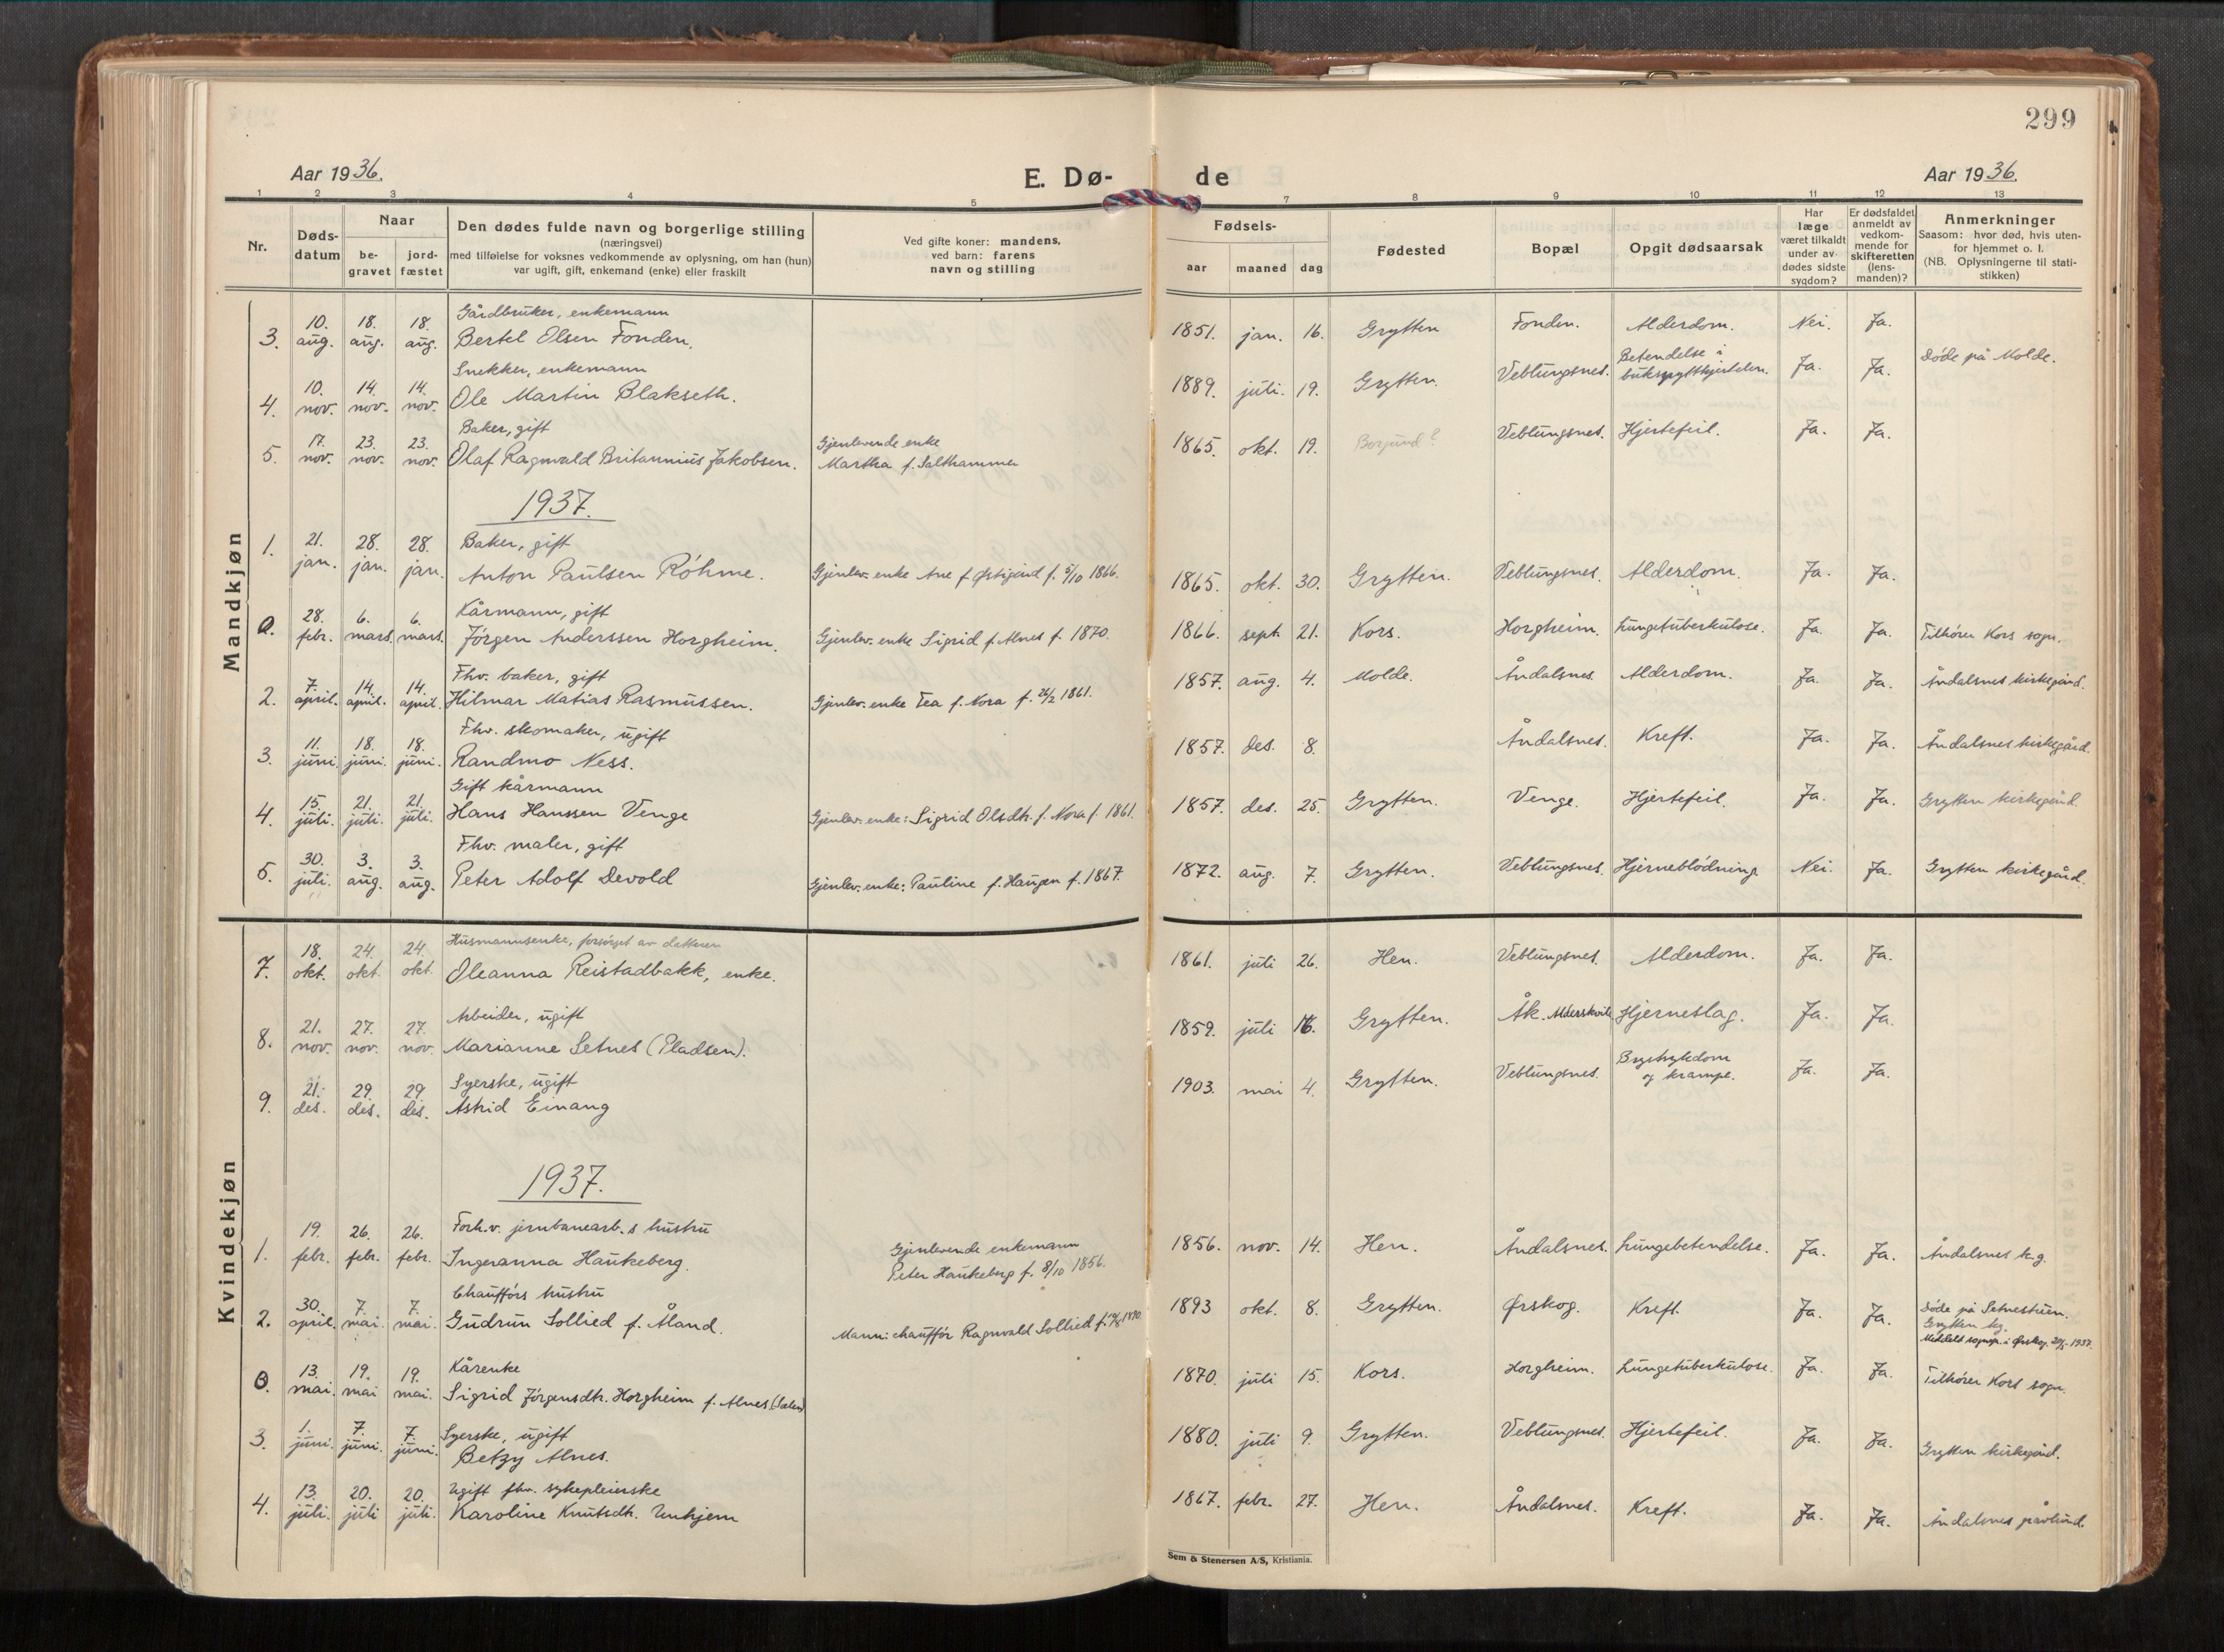 299
Aar 1936.
E. Dø-
de
Aar 1936.
1 2 3 4 5 7 8 9 10 11 12 13
Nr.
Døds-
datum
Naar
be-
gravet
jord-
fæstet
Den dødes fulde navn og borgerlige stilling
(næringsvei)
med tilføielse for voksnes vedkommende av oplysning, om han (hun)
var ugift, gift, enkemand (enke) eller fraskilt
Ved gifte koner: mandens,
ved barn: farens
navn og stilling
Fødsels-
aar maaned dag
Fødested
Bopæl
Opgit dødsaarsak
Har
læge
været tilkaldt
under av-
dødes sidste
sygdom?
Er dødsfaldet
anmeldt av
vedkom-
mende for
skifteretten
(lens-
manden)?
Anmerkninger
Saasom: hvor død, hvis uten-
for hjemmet o. l.
(NB. Oplysningerne til stati-
stikken)
Mandkjøn
Gårdbruker, enkemann
3. 10. aug. 18. aug. 18. aug. Bertel Olsen Fonden. 1851. jan. 16. Grytten Fonden. Alderdom. Nei. Ja.
Snekker, enkemann
4. 10. nov. 14. nov. 14. nov. Ole Martin Blakseth. 1889. juli. 19. Grytten. Veblungsnes. Betendelse i bukspyttkjertelen. Ja. Ja. Døde på Molde.
Baker, gift
5. 17. nov. 23. nov. 23. nov. Olaf Ragnvald Britannius Jakobsen. Gjenlevende enke Martha f. Salthammer 1865. okt. 19. Borgund? Veblungsnes. Hjertefeil. Ja. Ja.
1937.
Baker, gift
1. 21. jan. 28. jan. 28. jan. Anton Paulsen Röhme. Gjenlev. enke Ane f. Østigård f. 5/10 1866. 1865. okt. 30. Grytten. Veblungsnes. Alderdom. Ja. Ja.
Kårmann, gift
0. 28. febr. 6. mars. 6. mars. Jörgen Anderssen Horgheim. Gjenlev. enke Sigrid f. Alnes f. 1870. 1866. sept. 21. Kors. Horgheim. Lungetuberkulose. Ja. Ja. Tilhører Kors sogn.
Fhv. baker, gift
2. 7. april. 14. april. 14. april. Hilmar Matias Rasmussen. Gjenlev. enke Tea f. Nora f. 26/2 1861. 1857. aug. 4. Molde. Åndalsnes Alderdom. Ja. Ja. Åndalsnes kirkegård.
Fhv. skomaker, ugift
3. 11. juni. 18. juni. 18. juni. Randmo Ness. 1857. des. 8. Åndalsnes. Kreft. Ja. Ja. Åndalsnes kirkegård.
Gift kårmann
4. 15. juli. 21. juli. 21. juli. Hans Hanssen Venge Gjenlev. enke: Sigrid Olsdtr. f. Nora f. 1861. 1857. des. 25. Grytten. Venge. Hjertefeil. Ja. Ja. Grytten kirkegård
Fhv. maler, gift
5. 30. juli. 3. aug. 3. aug. Peter Adolf Devold Gjenlev. enke: Pauline f. Haugen f. 1867. 1872. aug. 7. Grytten. Veblungsnes. Hjerneblödning. Nei. Ja. Grytten kirkegård.
Kvindekjøn
Husmannsenke, forsörget av datteren
7. 18. okt. 24. okt. 24. okt. Oleanna Reistadbakk, enke. 1861. juli 26. Hen. Veblungsnes. Alderdom. Ja. Ja.
Arbeider, ugift
8. 21. nov. 27. nov. 27. nov. Marianne Setnes (Pladsen). 1859. juli 16. Grytten. Åk. Alderskvile Hjerneslag. Ja. Ja.
Syerske, ugift
9. 21. des. 29. des. 29. des. Astrid Einang 1903. mai 4. Grytten. Veblungsnes. Brystsykdom og krampe. Ja. Ja.
1937.
Forh.v. jernbanearb.s hustru
1. 19. febr. 26. febr. 26. febr. Ingeranna Haukeberg. Gjenlevende enkemann Peter Haukeberg f. 8/10 1856. 1856. nov. 14. Hen. Åndalsnes. Lungebetendelse. Ja. Ja. Åndalsnes k.g.
Chaufförs hustru
2. 30. april. 7. mai. 7. mai. Gudrun Sollied f. Åland. Mann: chaufför Ragnvald Sollied 1893 okt. 8. Grytten. Ørskog. Kreft. Ja. Ja. Døde på Setnesteien. Grytten kg. Meddelt sognepr. i Ørskog 1937.
Kårenke
0. 13. mai. 19. mai 19. mai. Sigrid Jörgensdtr. Horgheim f. Alnes. 1870. juli 15. Kors. Horgheim. Lungetuberkulose. Ja. Ja. Tilhører Kors sogn.
Syerske, ugift
3. 1. juni. 7. juni. 7. juni. Betzy Alnes. 1880. juli 9. Grytten. Veblungsnes. Hjertefeil. Ja. Ja. Grytten kirkegård.
Ugift fhv. sykepleierske
4. 13. juli. 20. juli 20. juli. Karoline Knutsdtr. Unhjem 1867. febr. 27. Hen. Åndalsnes. Kreft. Ja. Ja. Åndalsnes gravlund.
Sem & Stenersen A/S, Kristiania.